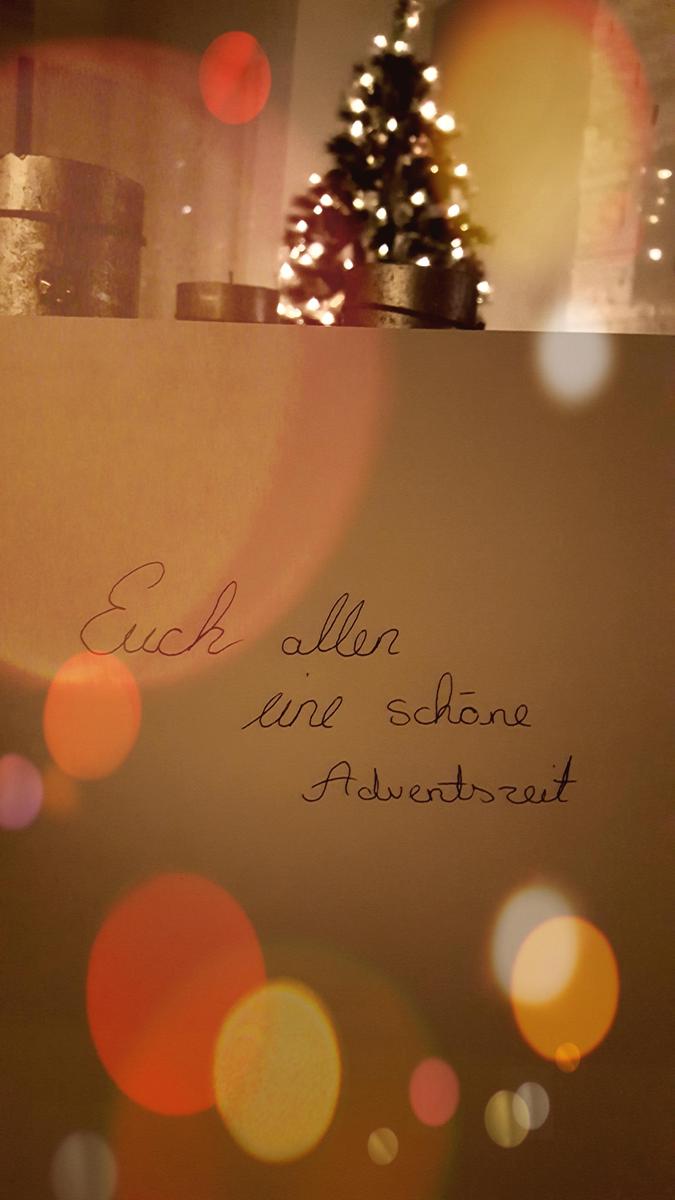 Euch allen
eine schöne
Adventszeit